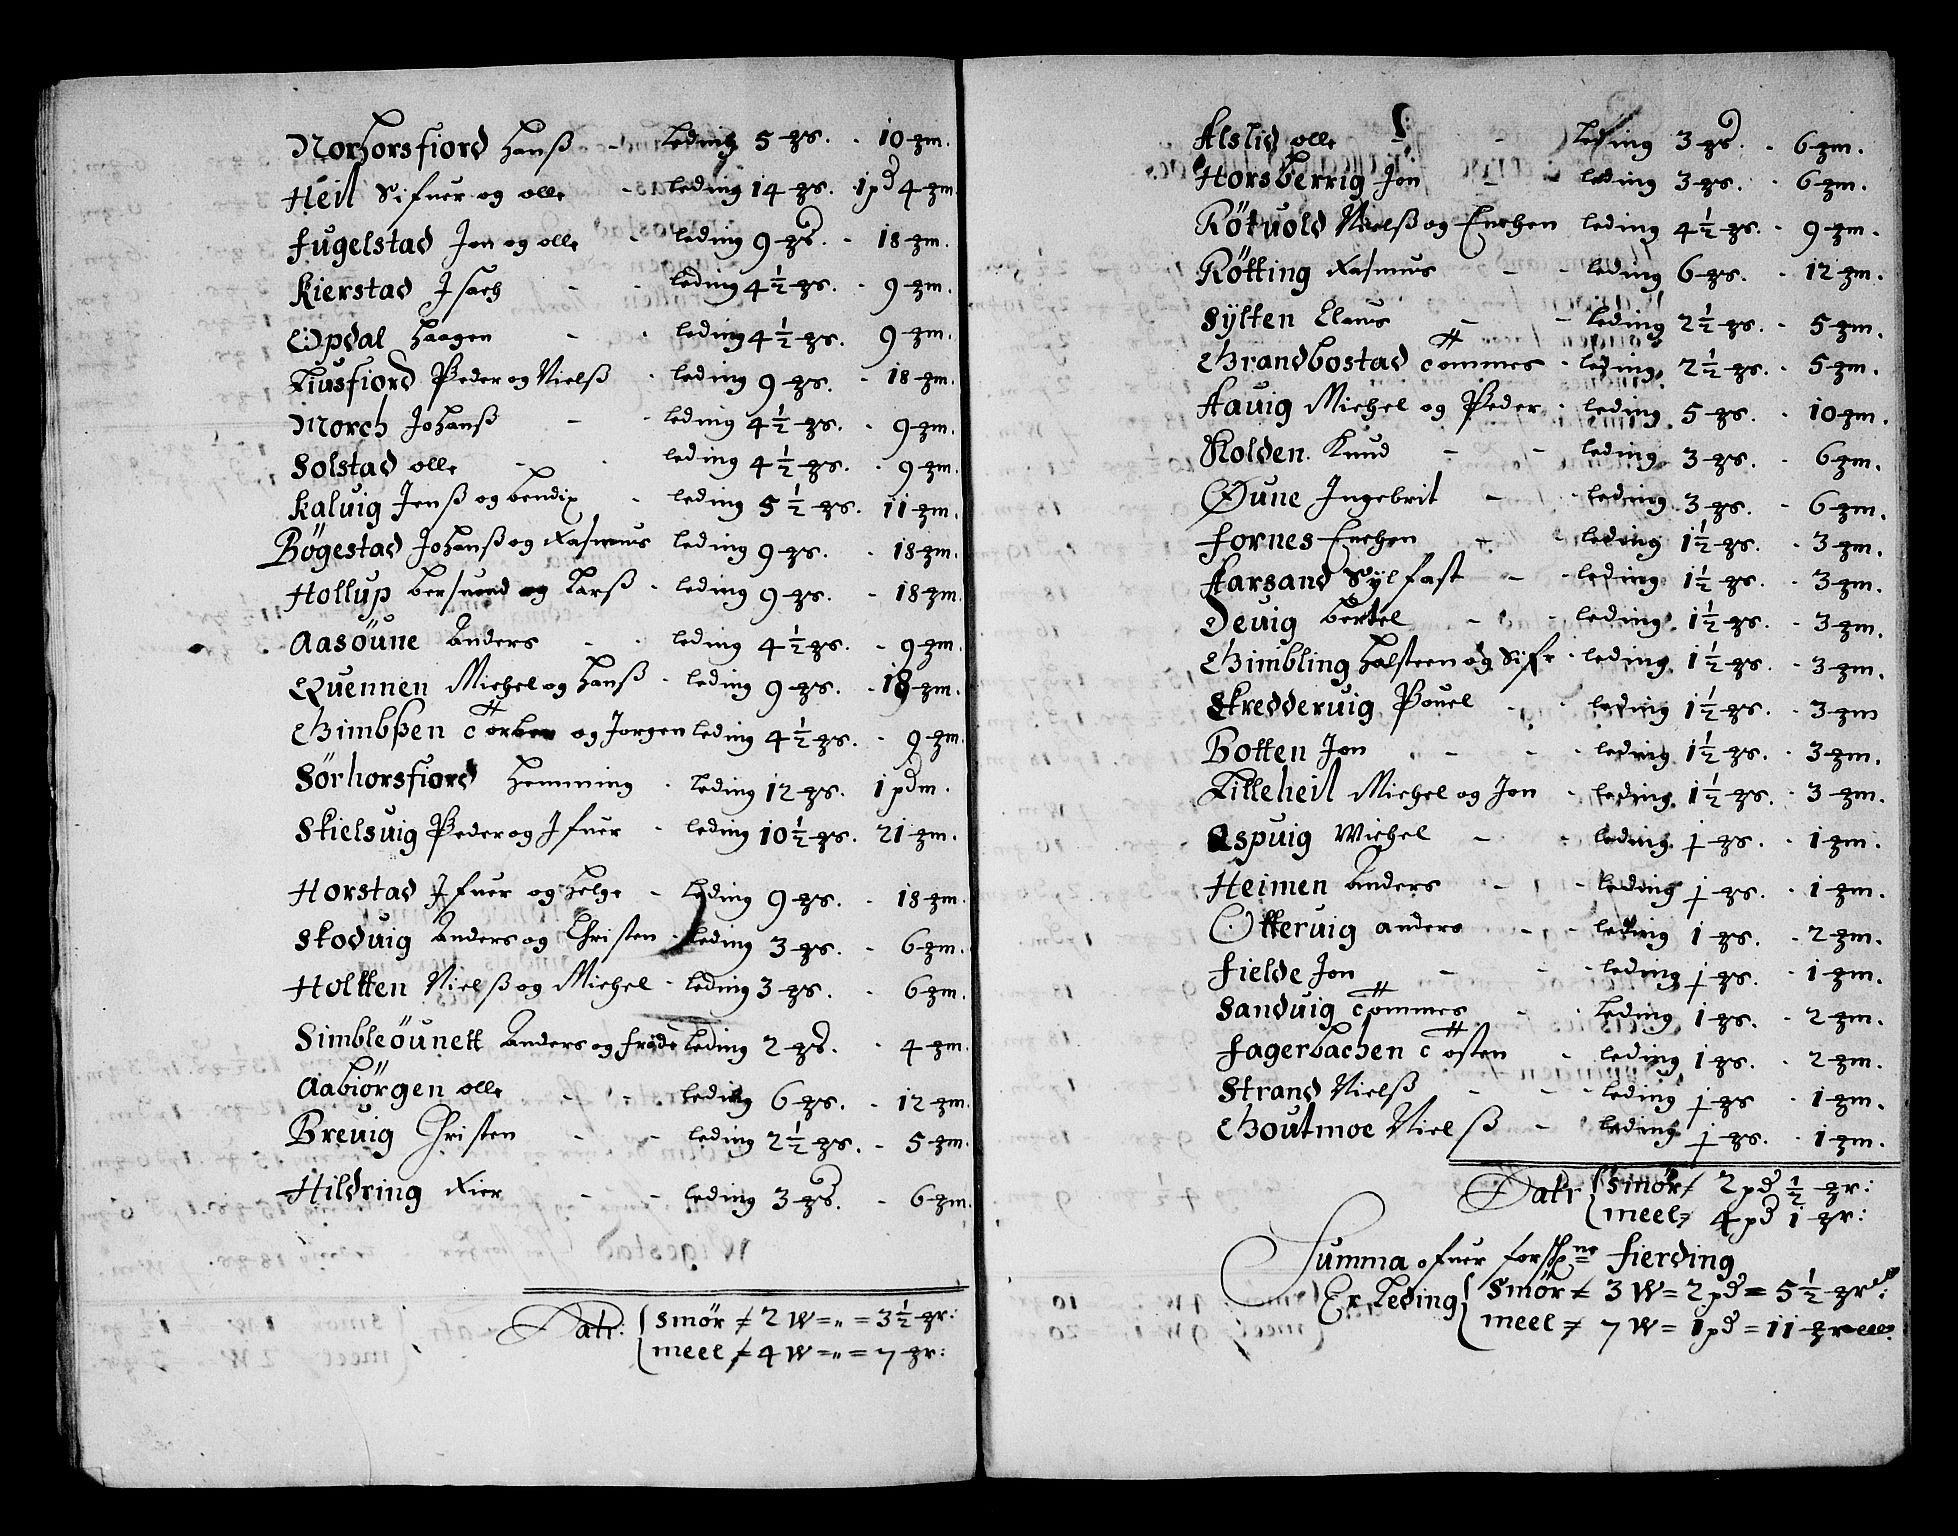 Norhorsfiord Hanß - Leding 5 gs. - 10 gm.
Heil Sifuer og olle - leding 14 gs. 1 pd 4 gm.
Fugelstad Jon og olle - leding 9 gs. - 18 gm.
Kierstad Isach - - leding 4½ gs. - 9 gm.
Opdal Haagen - - leding 4½ gs. 9 gm.
Liusfiord Peder og Nielß - leding 9 gs. - 18 gm.
Morch Johanß - - leding 4½ gs. - 9 gm.
Solstad olle - - leding 4½ gs. - 9 gm.
Kaluig Jenß og bendix - leding 5½ gs. 11 gm.
Bögestad Johanß og Rasmus leding 9 gs. - 18 gm.
Hollup bersuend og Larß - leding 9 gs. - 18 gm.
Aasöune Anders - - leding 4½ gs. - 9 gm.
Quennen Michel og Hanß - leding 9 gs. - 18 gm.
Gimbßen Torben og Jorgen leding 4½ gs. - 9 gm.
Sörhorsfiord Hemming - leding 12 gs. 1 pdm.
Skielsuig Peder og Ifuer - leding 10½ gs. 21 gm.
Horstad Ifuer og Helge - leding 9 gs. - 18 gm.
Skoduig Anders og Christen - leding 3 gs. - 6 gm.
Holtten Nielß og Michel - leding 3 gs. - 6 gm.
Simbleöunett Anders og frode leding 2 gs. - 4 gm.
Aabiörgen olle - - leding 6 gs. - 12 gm.
Breuig Christen - - leding 2½ gs. - 5 gm.
Hildring Rier - - leding 3 gs. - 6 gm.
Latr: smör = 2 W = „ = 3½ gr:
meel = 4 W = „ = 7 gr:
Alslid olle - - leding 3 gs. - 6 gm.
Horsberrig Jon - leding 3 gs. - 6 gm.
Rökuold Nielß og Enchen leding 4½ gs. - 9 gm.
Rötting Rasmus - - leding 6 gs. - 12 gm.
Sylten Claus - - leding 2½ gs. - 5 gm.
Brandbostad Tommes - leding 2½ gs. - 5 gm.
Hauig Michel og Peder - leding 5 gs. - 10 gm.
Kolden Knud - - leding 3 gs. - 6 gm.
Öune Ingebrit - - leding 3 gs. - 6 gm.
Fornes Enchen - - leding 1½ gs. - 3 gm.
Aarsand Sylfast - - leding 1½ gs. - 3 gm.
Deuig bertel - - leding 1½ gs. - 3 gm.
Gimbling Holsteen og Sifr - leding 1½ gs. - 3 gm.
Skredderuig Pouel - - leding 1½ gs. - 3 gm
Botten Jon - - leding 1½ gs. - 3 gm.
Lilleheil Michel og Jon - leding 1½ gs. - 3 gm.
Aspuig Michel - - leding ½ gs. - 1 gm.
Heimen Anders - - leding ½ gs. - 1 gm.
Otteruig anders - - leding 1 gs. - 2 gm.
Fielde Jon - - leding ½ gs. - 1 gm.
Sanduig Tommes - - leding 1 gs. - 2 gm.
Fagerbachen Tosten - leding 1 gs. - 2 gm.
Strand Nielß - - leding ½ gs - 1 gm.
Goutmoe Nielß - leding ½ gs. - 1 gm.
Latr smör = 2 pd ½ gr:
meel = 4 pd 1 gr:
Summa ofuer forsch:ne fierding
Er Leding smör = 3 W = 2 pd = 5½ gr:
meel = 7 W = 1 pd = 11 gr